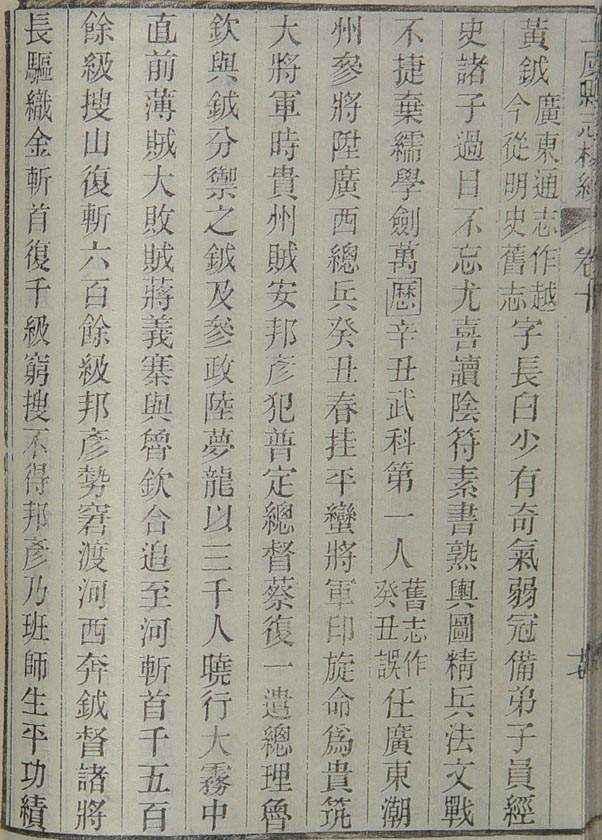 虞縣志校續 卷十
黃鉞廣東通志作越今從明史舊志字長白少有奇氣弱冠備弟子員經
史諸子過目不忘尤喜讀陰符素書熟輿圖精兵法文戰
不捷棄繻學劍萬歴辛丑武科第一人舊志作癸丑誤任廣東潮
州參將陞廣西總兵癸丑春挂平蠻將軍印旋命爲貴筑
大將軍時貴州賊安邦彥犯普定總督蔡復一遣總理魯
欽與鉞分禦之鉞及參政陸夢龍以三千人曉行大霧中
直前薄賊大敗賊蔣義寨與魯欽合追至河斬首千五百
餘級搜山復斬六百餘級邦彥勢窘渡河西奔鉞督諸將
長驅織金斬首復千級窮搜不得邦彥乃班師生平功績